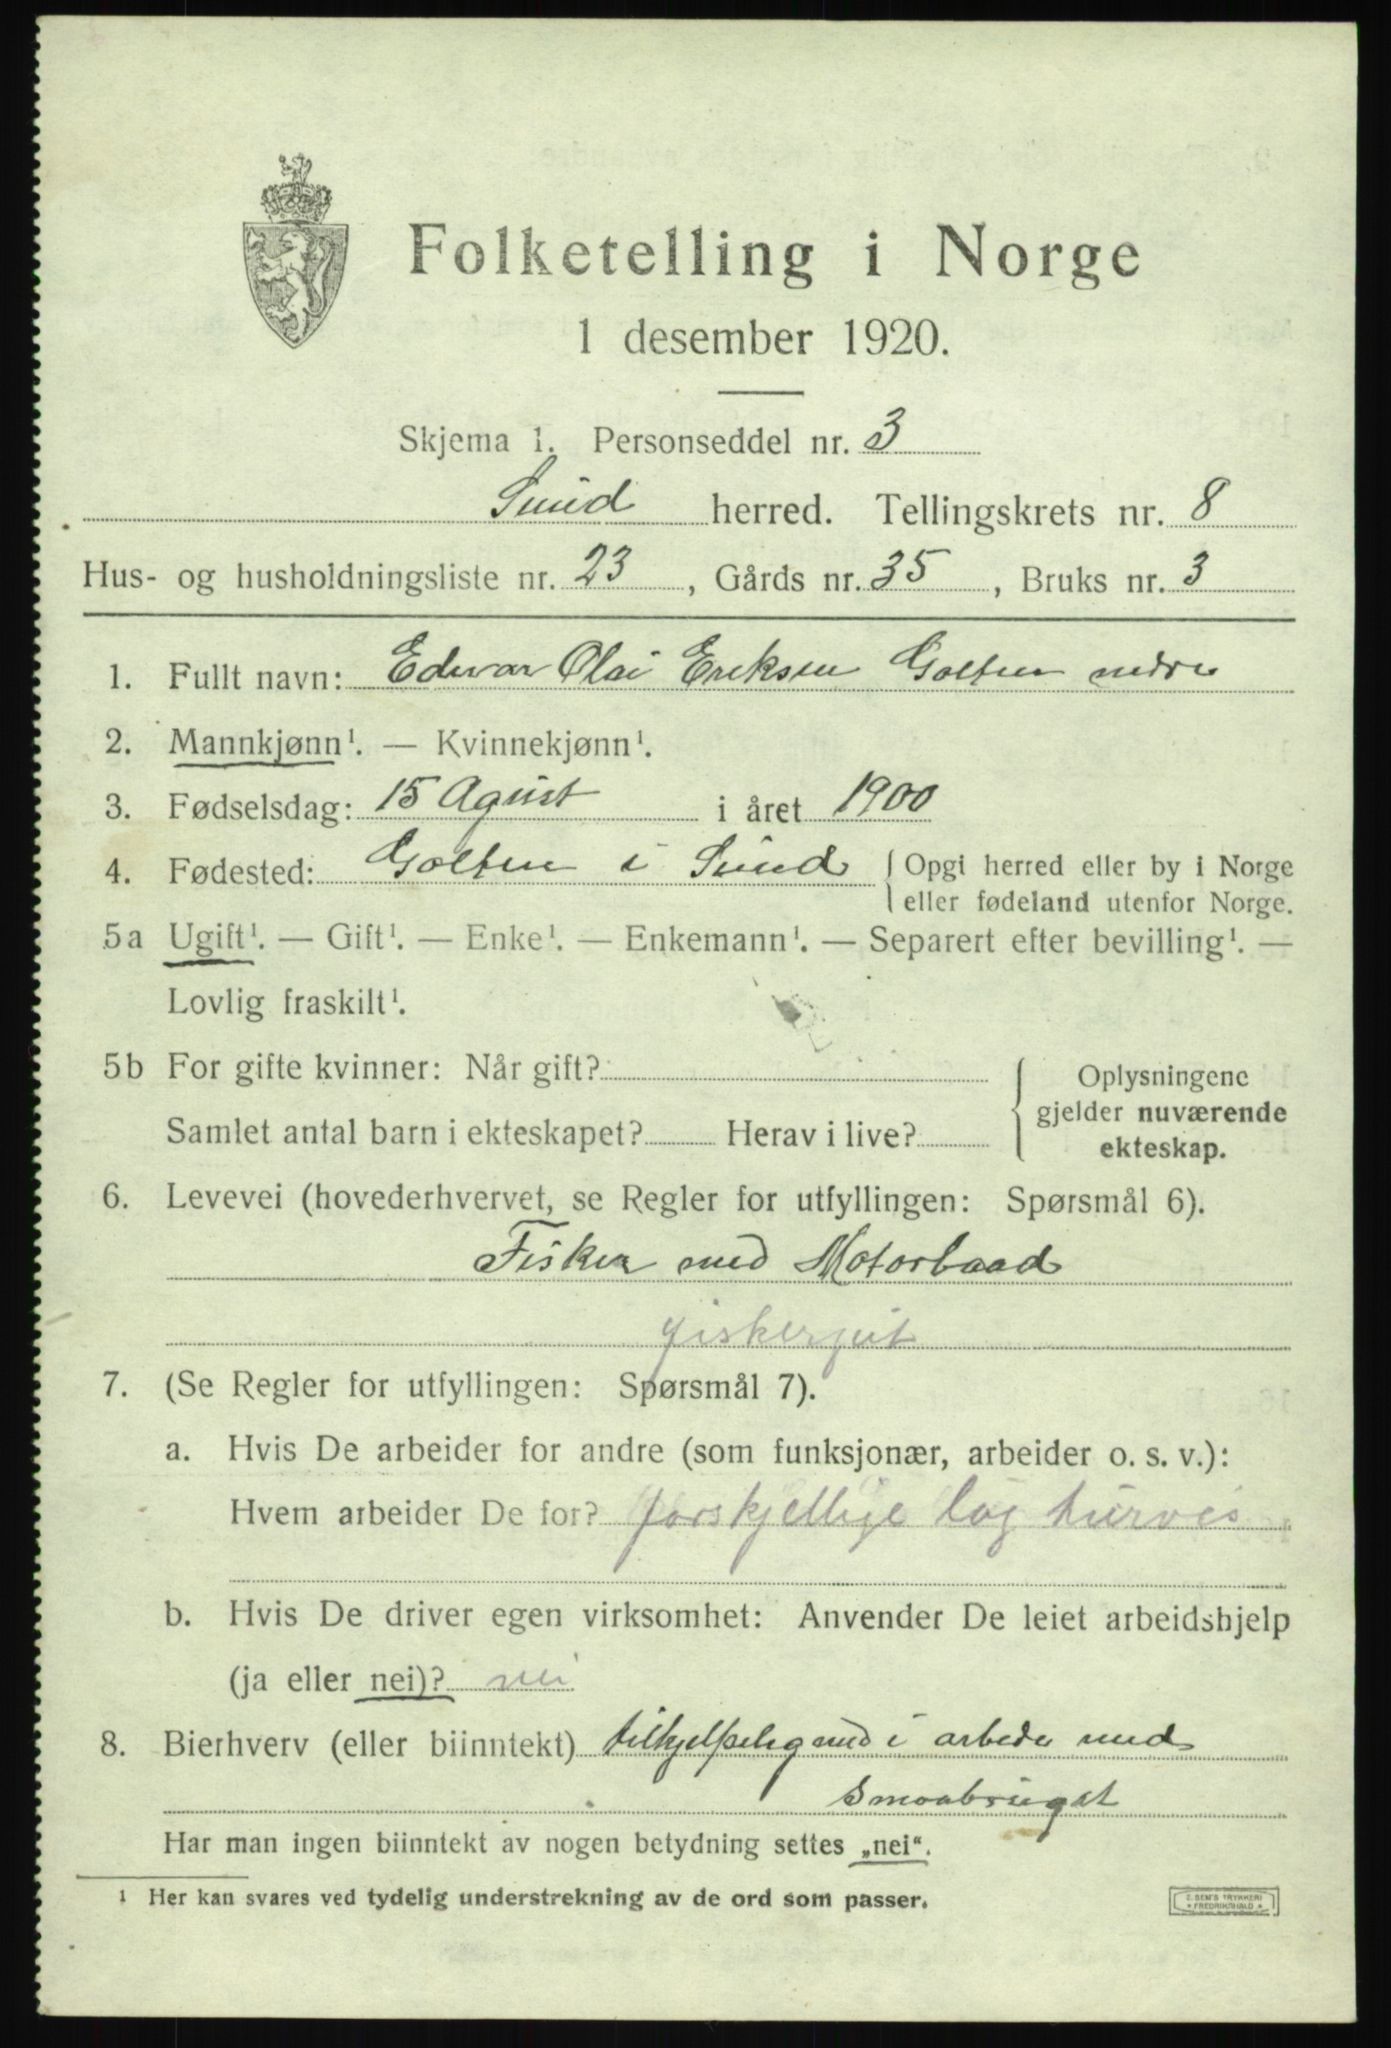 Folketelling i Norge
1 desember 1920.
Skjema 1. Personseddel nr. 3
Sund herred. Tellingskrets nr. 8
Hus- og husholdningsliste nr. 23, Gårds nr. 35, Bruks nr. 3
1. Fullt navn: Edvar Olai Eriksen Golten nedre
2. Mannkjønn¹. — Kvinnekjønn¹.
3. Fødselsdag: 15 Agust i året 1900
4. Fødested: Golten i Sund { Opgi herred eller by i Norge
eller fødeland utenfor Norge.
5a Ugift¹. — Gift¹. — Enke¹. — Enkemann¹. — Separert efter bevilling¹. —
Lovlig fraskilt¹.
5b For gifte kvinner: Når gift?
Samlet antal barn i ekteskapet? Herav i live?
{ Oplysningene
gjelder nuværende
ekteskap.
6. Levevei (hovederhvervet, se Regler for utfyllingen: Spørsmål 6).
Fisker med Motorbaad
fiskergut
7. (Se Regler for utfyllingen: Spørsmål 7).
a. Hvis De arbeider for andre (som funksjonær, arbeider o. s. v.):
Hvem arbeider De for? forskjellige lag turvis
b. Hvis De driver egen virksomhet: Anvender De leiet arbeidshjelp
(ja eller nei)? nei
8. Bierhverv (eller biinntekt) tilhjelpelig med i arbede med
Smaabruget
Har man ingen biinntekt av nogen betydning settes „nei“.
¹ Her kan svares ved tydelig understrekning av de ord som passer.
SEM'S TRYKKERI
* FREDRIKSHALD *